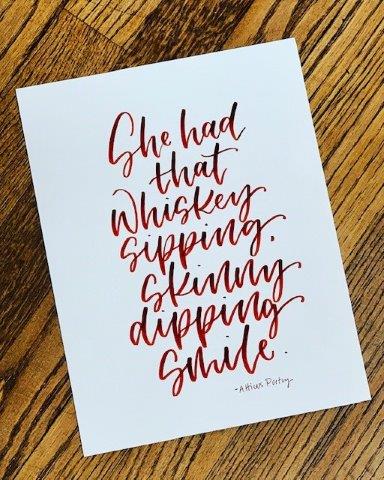 She had
that
Whiskey
sipping,
skinny
dipping
Smile.
-Atticus Poetry